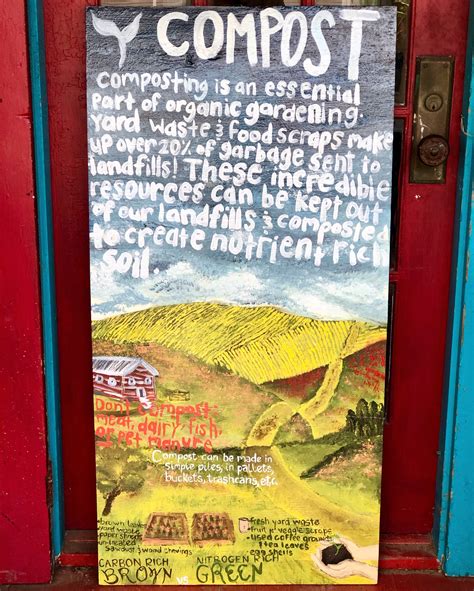 COMPOST
composting is an essential
part of organic gardening.
yard waste & food scraps make
up over 20% of garbage sent to
landfills! These incredible
resources can be kept out
of our landfills & composted
to create nutrient rich
soil.
Don't compost:
meat, dairy, fish,
or pet manure
Compost can be made in
simple piles, in pallets,
buckets, trashcans, etc.
brown
yard waste
paper
untreated
sawdust & wood shavings
CARBON RICH
BROWN
vs
fresh yard waste
fruit & veggie scraps
used coffee grounds
tea leaves
egg shells
NITROGEN RICH
GREEN